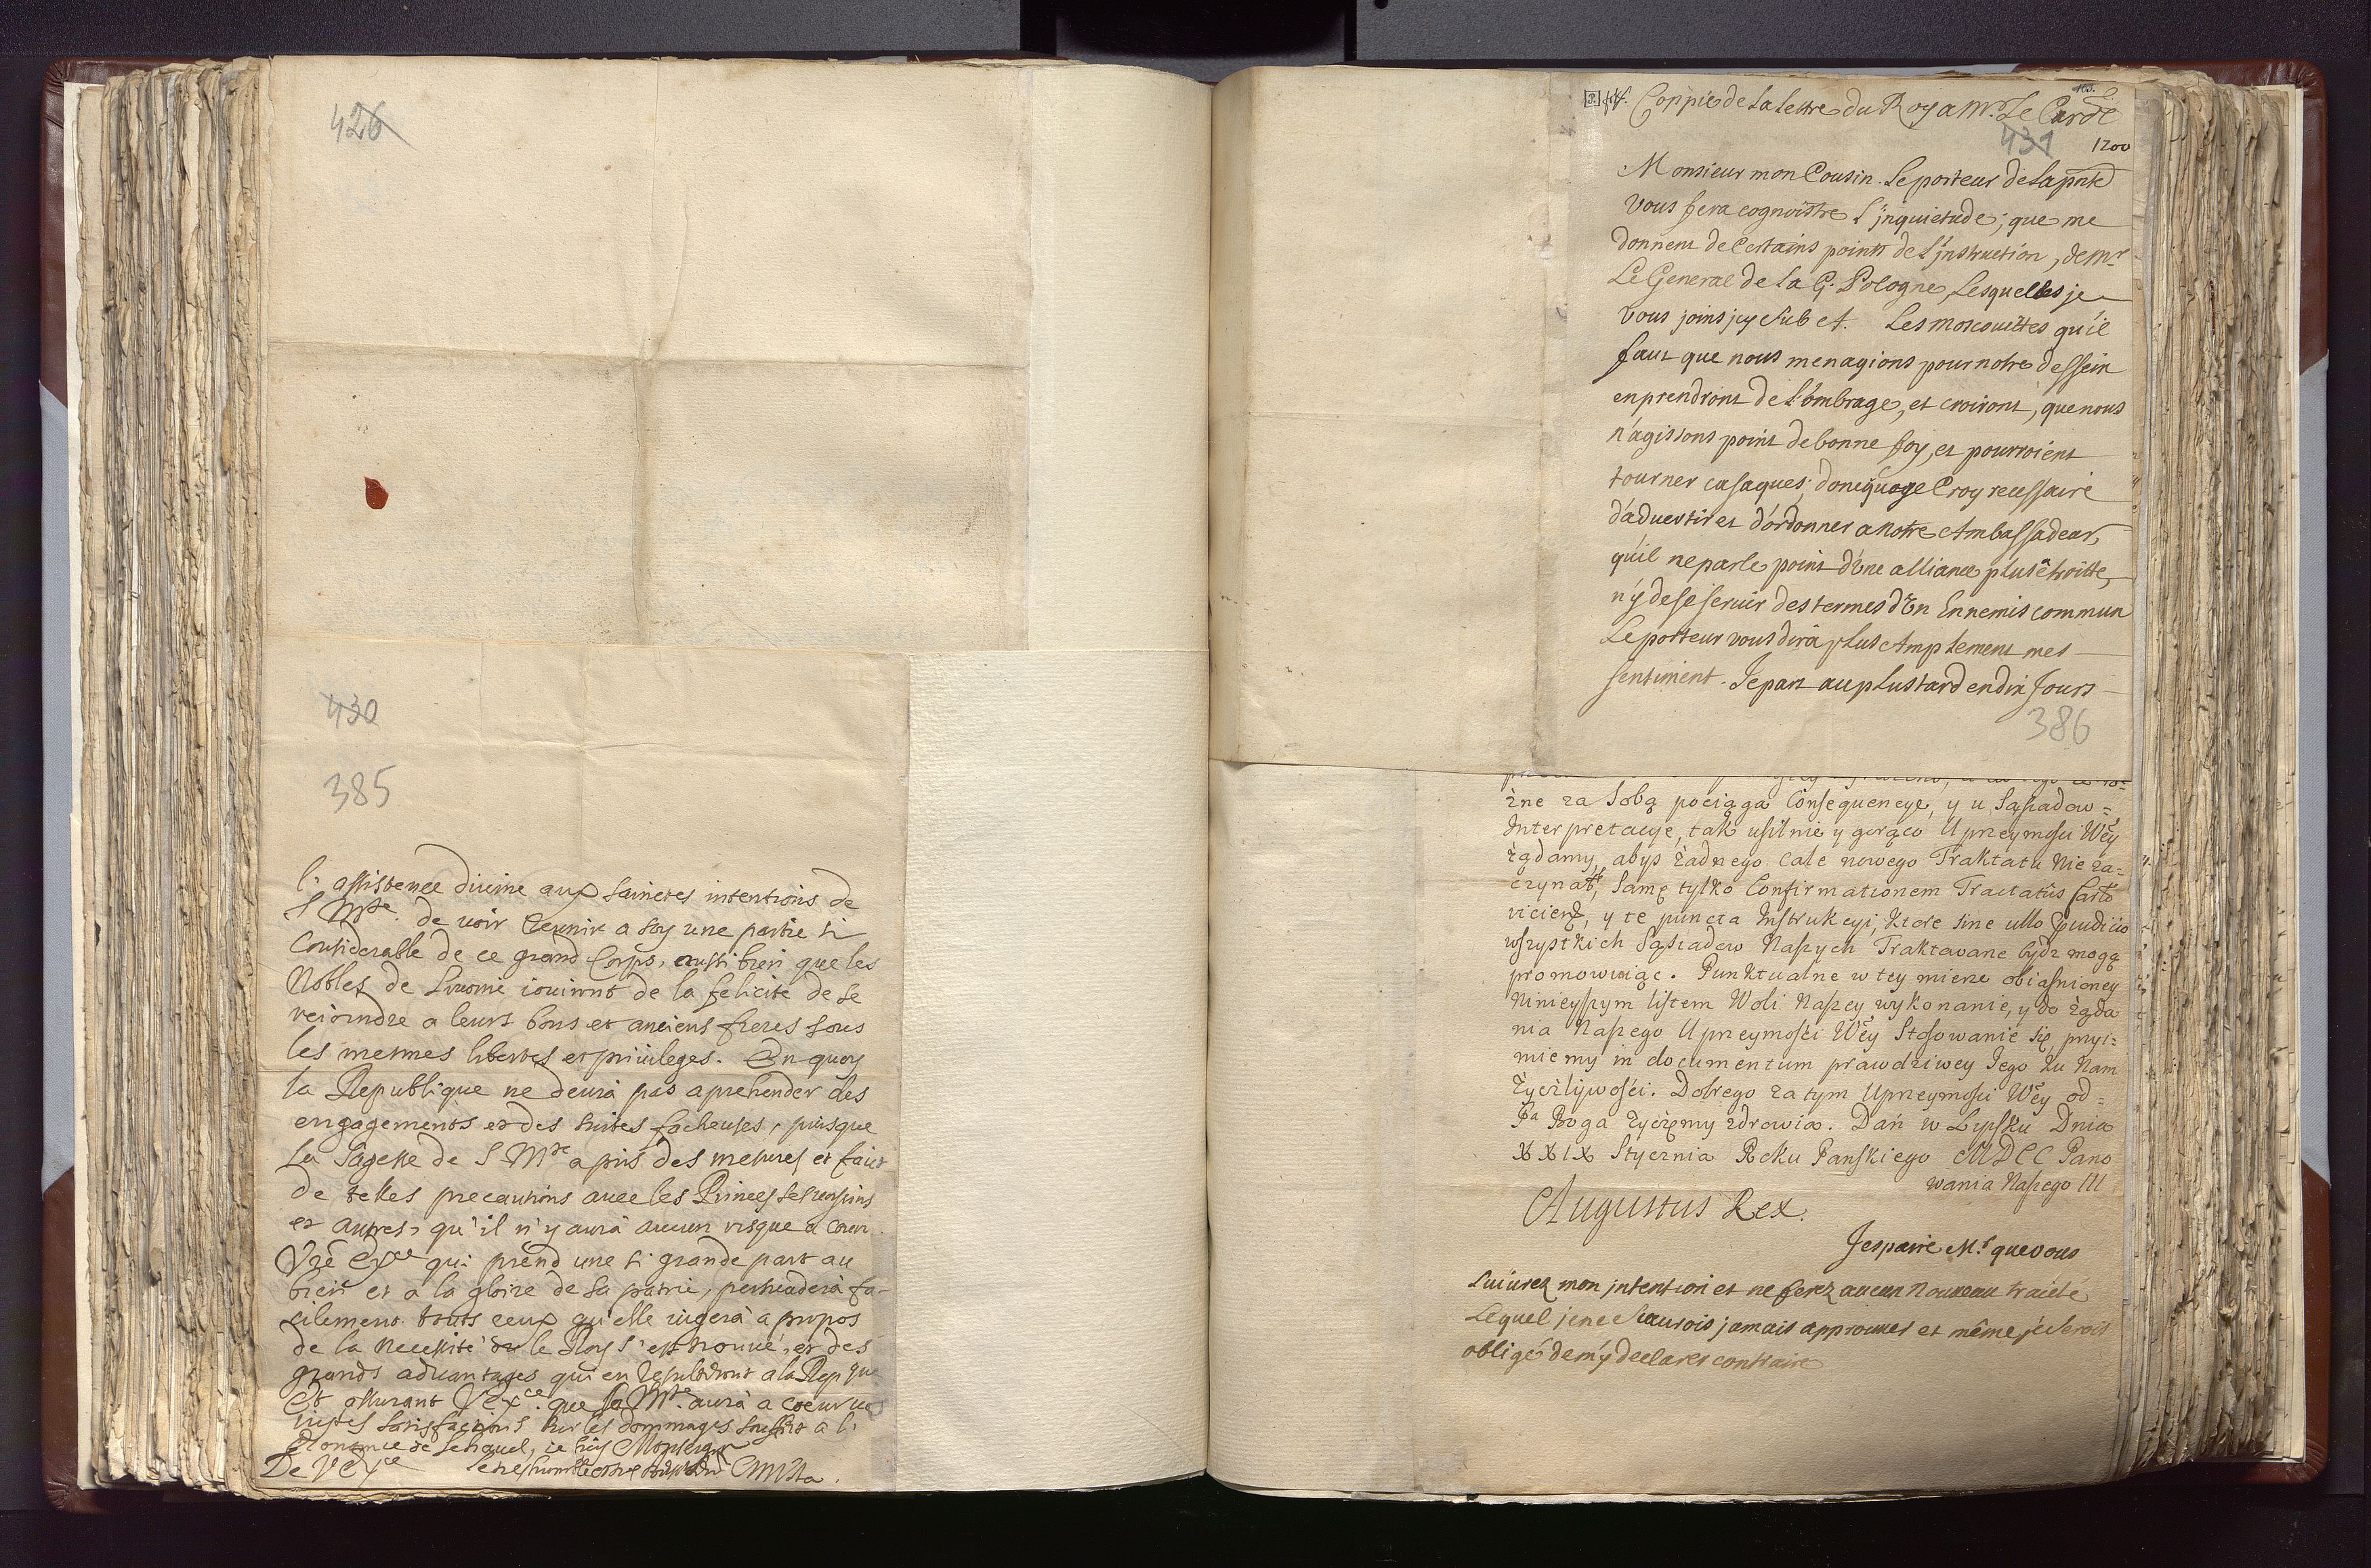 426
430
385
l'assistence divine aux sainctes intentions de
S Mte. de voir reunir a soy une partie si
Considerable de ce grand Corps, aussi bien que les
Nobles de Livonie iouiront de la felicité de se
reioindre a leurs bons et anciens freres sous
les mesmes libertes et privileges. En quoy
la Republique ne devrà pas aprehender des
engagements et des suites facheuses, puisque
la Sagesse de S Mte a pris des mesures et faict
de telles precautions avec les Princes ses voisins
et autres, qu'il n'y aurà aucun risque a courir.
Vre Exce qui prend une si grande part au
bien et a la gloire de sa patrie, persuaderà fa-
cilement touts ceux qu'elle iugerà a propos
de la necessité ou le Roy s'est trouvé, et des
grands advantages qui en resulteront a la Repque
Et assurant V Exce. que sa Mte. aurà a coeur
iustes satisfactions sur les dommages soufferts a l'
de ie suis Monseigr
De V Exce
431
1700
Coppie de la lettre du Roy a Mr. Le Cardl
Monsieur mon Cousin. Le porteur de la pnte
vous fera cognoistre l'jnquietude, que me
donnent de Certains points de l'jnstruction, de Mr
Le General de la G. Pologne, Lesquelles je
vous joins jcy sub A. Les moscouittes qu'il
faut que nous menagions pour notre dessein
enprendront de l'ombrage, et croiront, que nous
n'agissons point de bonne foy, et pourroient
tourner casaques; donc que je Croy necessaire
d'advertir et d'ordonner a Notre Ambassadeur,
qu'il ne parle point d'vne alliance plus étroitte,
n'y de se servir des termes d'vn Ennemis commun
Le porteur vous dirà plus Amplement mes
sentiment. Je part au plus tard en dix Jours
386
żne za sobą pociąga Consequencye, y u Sąsiadow
Interpretacye, tak usilnie y gorąco Uprzeymosci Wey
żądamy, abys żadnego cale nowego Traktatu nie za-
czynał, samę tylko Confirmationem Tractatus Carlo
viciens, y te puncta Instrukcyi, ktore sine ullo
wszystkich Sąsiadow Naszych Traktowane bydz mogą
promowuiąc. Punktualne w tey mierze obiasnioney
Ninieyszym listem Woli Naszey wykonanie, y do żąda
nia Naszego Uprzeymości Wey Stosowanie się, przyi-
miemy in documentum prawdziwey Jego ku Nam
Życzliwości. Dobrego zatym Uprzeymości Wey od
Pa Boga życzemy zdrowia. Dań w Lypsku Dnia
XXIX Stycznia Roku Panskiego MDCC Pano
wania Naszego III
Augustus Rex.
Jespaire Mr. que vous
suiurez mon jntention et ne ferez aucun Nouveau traicté
Lequel je ne scaurois jamais approuver et même je serois
obligé de m'y declarer contraire